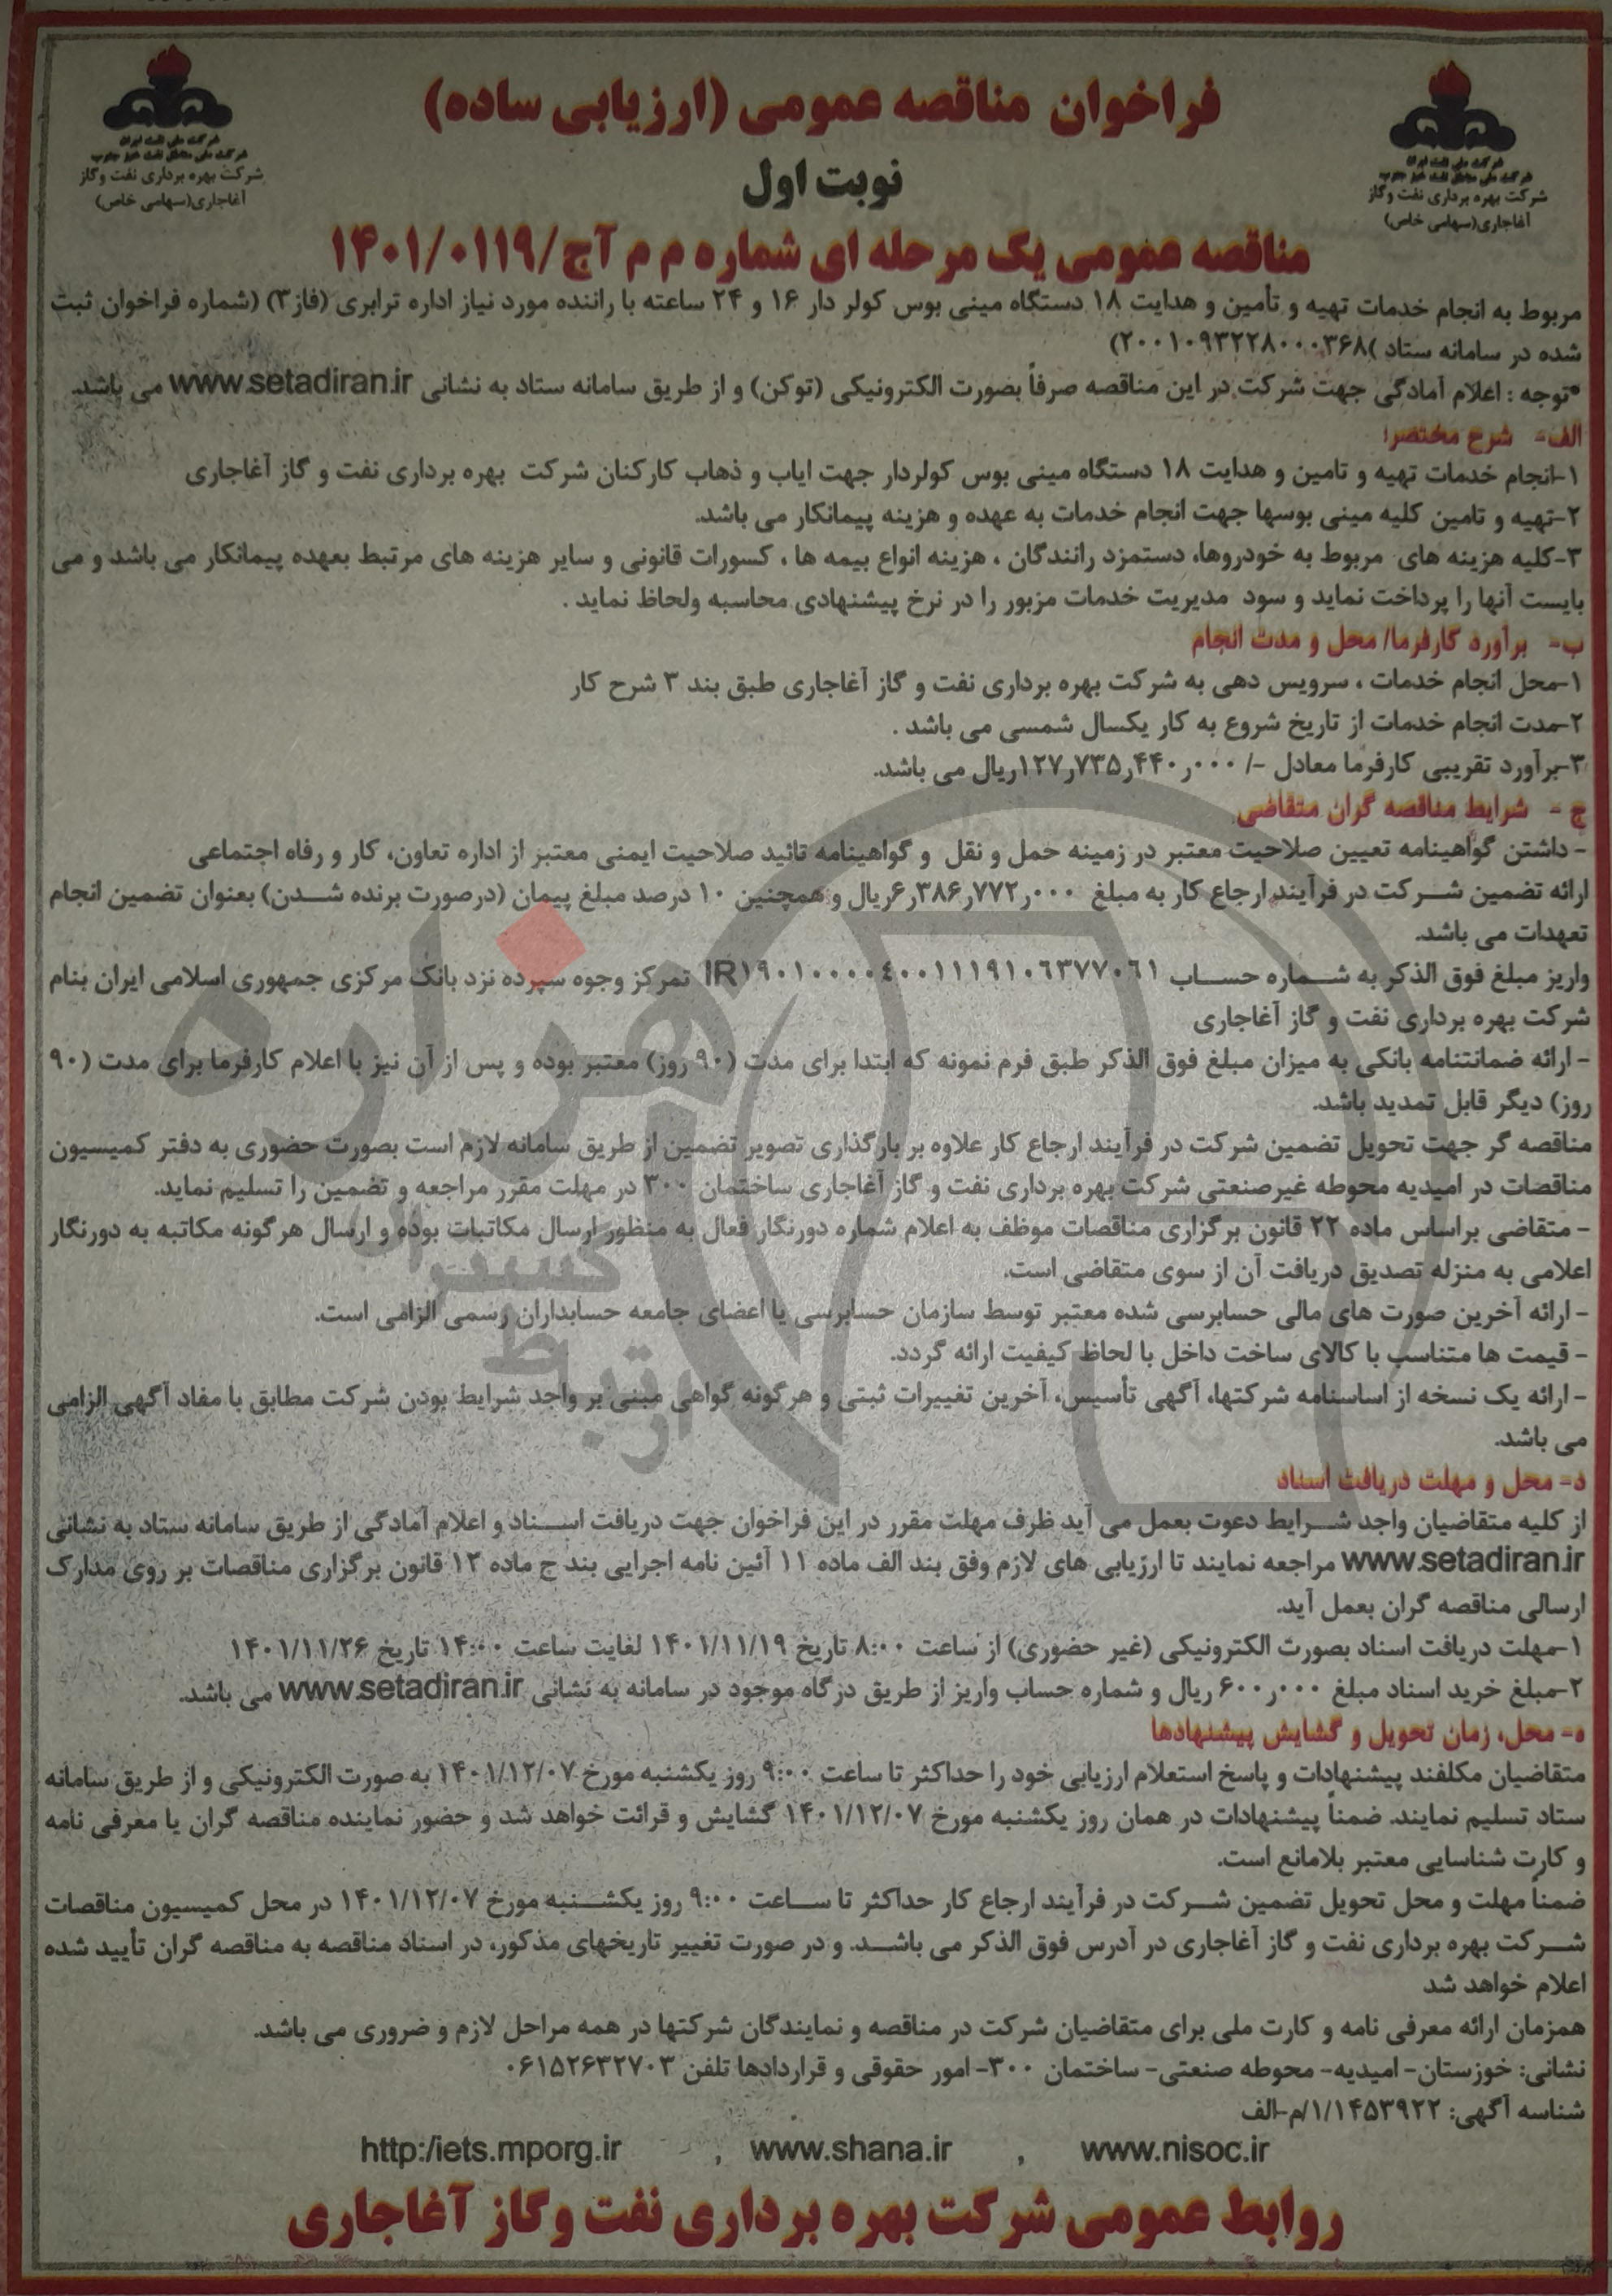 فراخوان مناقصه عمومی (ارزیابی ساده)
نوبت اول
شرکت ملی نفت ایران
شرکت ملی مناطق نفت خیز جنوب
شرکت بهره برداری نفت وگاز
آغاجاری(سهامی خاص)
شرکت ملی نفت ایران
شرکت ملی مناطق نفت خیز جنوب
شرکت بهره برداری نفت وگاز
آغاجاری(سهامی خاص)
مناقصه عمومی یک مرحله ای شماره م م آج/۱۴۰۱/۰۱۱۹
مربوط به انجام خدمات تهیه و تأمین و هدایت ۱۸ دستگاه مینی بوس کولر دار ۱۶ و ۲۴ ساعته با راننده مورد نیاز اداره ترابری (فاز۳) (شماره فراخوان ثبت
شده در سامانه ستاد )۲۰۰۱۰۹۳۲۲۸۰۰۰۳۶۸)
*توجه : اعلام آمادگی جهت شرکت در این مناقصه صرفاً بصورت الکترونیکی (توکن) و از طریق سامانه ستاد به نشانی www.setadiran.ir می باشد.
الف- شرح مختصر:
۱-انجام خدمات تهیه و تامین و هدایت ۱۸ دستگاه مینی بوس کولردار جهت ایاب و ذهاب کارکنان شرکت بهره برداری نفت و گاز آغاجاری
۲-تهیه و تامین کلیه مینی بوسها جهت انجام خدمات به عهده و هزینه پیمانکار می باشد.
۳-کلیه هزینه های مربوط به خودروها، دستمزد رانندگان ، هزینه انواع بیمه ها ، کسورات قانونی و سایر هزینه های مرتبط بعهده پیمانکار می باشد و می
بایست آنها را پرداخت نماید و سود مدیریت خدمات مزبور را در نرخ پیشنهادی محاسبه ولحاظ نماید .
ب- برآورد کارفرما/ محل و مدت انجام
۱-محل انجام خدمات ، سرویس دهی به شرکت بهره برداری نفت و گاز آغاجاری طبق بند ۳ شرح کار
۲-مدت انجام خدمات از تاریخ شروع به کار یکسال شمسی می باشد .
۳-برآورد تقریبی کارفرما معادل -/ ۱۲۷ر۷۳۵ر۴۴۰ر۰۰۰ریال می باشد.
ج - شرایط مناقصه گران متقاضی
- داشتن گواهینامه تعیین صلاحیت معتبر در زمینه حمل و نقل و گواهینامه تائید صلاحیت ایمنی معتبر از اداره تعاون، کار و رفاه اجتماعی
ارائه تضمین شرکت در فرآیند ارجاع کار به مبلغ ۶ر۳۸۶ر۷۷۲ر۰۰۰ریال و همچنین ۱۰ درصد مبلغ پیمان (درصورت برنده شدن) بعنوان تضمین انجام
تعهدات می باشد.
واریز مبلغ فوق الذکر به شماره حساب IR۱۹۰۱۰۰۰۰۴۰۰۱۱۱۹۱۰۶۳۷۷۰۶۱ تمرکز وجوه سپرده نزد بانک مرکزی جمهوری اسلامی ایران بنام
شرکت بهره برداری نفت و گاز آغاجاری
- ارائه ضمانتنامه بانکی به میزان مبلغ فوق الذکر طبق فرم نمونه که ابتدا برای مدت (۹۰ روز) معتبر بوده و پس از آن نیز با اعلام کارفرما برای مدت (۹۰
روز) دیگر قابل تمدید باشد.
مناقصه گر جهت تحویل تضمین شرکت در فرآیند ارجاع کار علاوه بر بارگذاری تصویر تضمین از طریق سامانه لازم است بصورت حضوری به دفتر کمیسیون
مناقصات در امیدیه محوطه غیرصنعتی شرکت بهره برداری نفت و گاز آغاجاری ساختمان ۳۰۰ در مهلت مقرر مراجعه و تضمین را تسلیم نماید.
- متقاضی براساس ماده ۲۲ قانون برگزاری مناقصات موظف به اعلام شماره دورنگار فعال به منظور ارسال مکاتبات بوده و ارسال هرگونه مکاتبه به دورنگار
اعلامی به منزله تصدیق دریافت آن از سوی متقاضی است.
- ارائه آخرین صورت های مالی حسابرسی شده معتبر توسط سازمان حسابرسی یا اعضای جامعه حسابداران رسمی الزامی است.
- قیمت ها متناسب با کالای ساخت داخل با لحاظ کیفیت ارائه گردد.
- ارائه یک نسخه از اساسنامه شرکتها، آگهی تأسیس، آخرین تغییرات ثبتی و هرگونه گواهی مبنی بر واجد شرایط بودن شرکت مطابق با مفاد آگهی الزامی
می باشد.
د- محل و مهلت دریافت اسناد
از کلیه متقاضیان واجد شرایط دعوت بعمل می آید ظرف مهلت مقرر در این فراخوان جهت دریافت اسناد و اعلام آمادگی از طریق سامانه ستاد به نشانی
www.setadiran.ir مراجعه نمایند تا ارزیابی های لازم وفق بند الف ماده ۱۱ آئین نامه اجرایی بند ج ماده ۱۲ قانون برگزاری مناقصات بر روی مدارک
ارسالی مناقصه گران بعمل آید.
۱-مهلت دریافت اسناد بصورت الکترونیکی (غیر حضوری) از ساعت ۸:۰۰ تاریخ ۱۴۰۱/۱۱/۱۹ لغایت ساعت ۱۴:۰۰ تاریخ ۱۴۰۱/۱۱/۲۶
۲-مبلغ خرید اسناد مبلغ ۶۰۰ر۰۰۰ ریال و شماره حساب واریز از طریق درگاه موجود در سامانه به نشانی www.setadiran.ir می باشد.
ه- محل، زمان تحویل و گشایش پیشنهادها
متقاضیان مکلفند پیشنهادات و پاسخ استعلام ارزیابی خود را حداکثر تا ساعت ۹:۰۰ روز یکشنبه مورخ ۱۴۰۱/۱۲/۰۷ به صورت الکترونیکی و از طریق سامانه
ستاد تسلیم نمایند. ضمناً پیشنهادات در همان روز یکشنبه مورخ ۱۴۰۱/۱۲/۰۷ گشایش و قرائت خواهد شد و حضور نماینده مناقصه گران یا معرفی نامه
و کارت شناسایی معتبر بلامانع است.
ضمناً مهلت و محل تحویل تضمین شرکت در فرآیند ارجاع کار حداکثر تا ساعت ۹:۰۰ روز یکشنبه مورخ ۱۴۰۱/۱۲/۰۷ در محل کمیسیون مناقصات
شرکت بهره برداری نفت و گاز آغاجاری در آدرس فوق الذکر می باشد. و در صورت تغییر تاریخهای مذکور، در اسناد مناقصه به مناقصه گران تأیید شده
اعلام خواهد شد
همزمان ارائه معرفی نامه و کارت ملی برای متقاضیان شرکت در مناقصه و نمایندگان شرکتها در همه مراحل لازم و ضروری می باشد.
نشانی: خوزستان- امیدیه- محوطه صنعتی- ساختمان ۳۰۰- امور حقوقی و قراردادها تلفن ۰۶۱۵۲۶۳۲۷۰۳
شناسه آگهی: ۱/۱۴۵۳۹۲۲/م-الف
www.nisoc.ir , www.shana.ir , http:/iets.mporg.ir
روابط عمومی شرکت بهره برداری نفت وگاز آغاجاری
هزاره
گستران
ارتباط